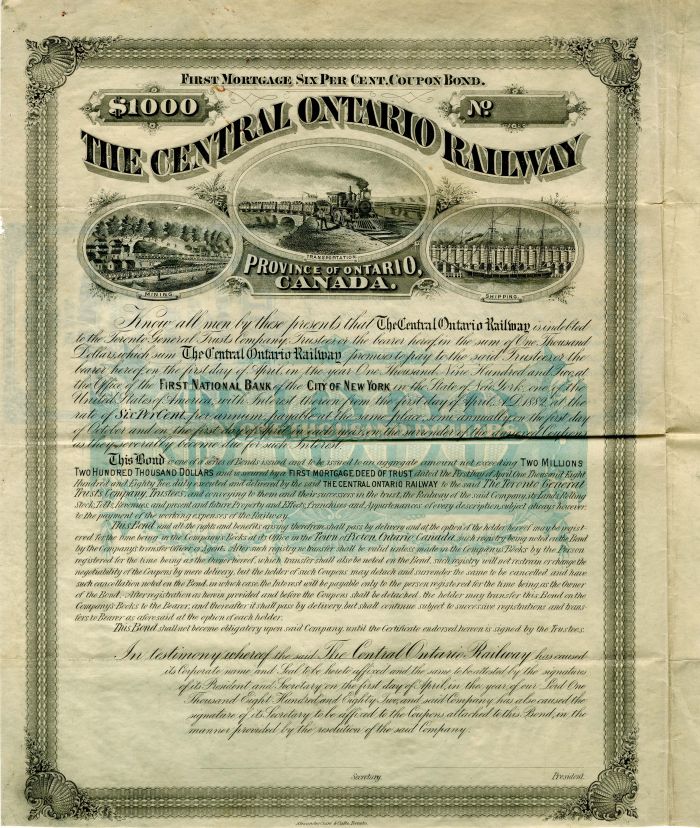 FIRST MORTGAGE SIX PER CENT. COUPON BOND.
$1000
No
THE CENTRAL ONTARIO RAILWAY
TRANSPORTATION
MINING
SHIPPING
PROVINCE OF ONTARIO,
CANADA.
Know all men by these presents that The Central Ontario Railway is indebted
to the Toronto General Trusts Company, Trustee, or the bearer hereof, in the sum of One Thousand
Dollars, which sum The Central Ontario Railway promises to pay to the said Trustee or the
bearer hereof on the first day of April in the year One Thousand Nine Hundred and Two, at
the Office of the FIRST NATIONAL BANK of the CITY OF NEW YORK in the State of New York, one of the
United States of America, with Interest thereon from the first day of April A.D. 1882, at the
rate of Six Per Cent. per annum, payable at the same place, semi annually, on the first day
of October and on the first day of April in each year, on the surrender of the annexed Coupons
as they severally become due for such Interest.
This Bond is one of a series of Bonds issued and to be issued to an aggregate amount not exceeding TWO MILLIONS
TWO HUNDRED THOUSAND DOLLARS and is secured by a FIRST MORTGAGE DEED OF TRUST, dated the First day of April, One Thousand Eight
Hundred and Eighty Two, duly executed and delivered by the said THE CENTRAL ONTARIO RAILWAY to the said The Toronto General
Trusts Company, Trustees, and conveying to them and their successors in the trust, the Railway of the said Company, its Lands, Rolling
Stock, Tolls, Revenues, and present and future Property and Effects, Franchises and Appurtenances, of every description, subject always however
to the payment of the working expenses of the Railway.
This Bond, and all the rights and benefits arising therefrom, shall pass by delivery, and at the option of the holder hereof may be regist-
ered for the time being in the Company's Books at its Office in the Town of Picton, Ontario, Canada, such registry being noted on the Bond
by the Company's transfer Officer or Agent. After such registry no transfer shall be valid unless made in the Company's Books by the Person
registered for the time being as the Owner hereof, which transfer shall also be noted on the Bond, such registry will not restrain or change the
negotiability of the Coupons by mere delivery, but the holder of such Coupons may detach and surrender the same to be cancelled and have
such cancellation noted on the Bond, in which case, the Interest will be payable only to the person registered for the time being, as the Owner
of the Bond. After registration as herein provided and before the Coupons shall be detached, the holder may transfer this Bond on the
Company's Books to the Bearer, and thereafter it shall pass by delivery, but shall continue subject to successive registrations and trans-
fers to Bearer as aforesaid at the option of each holder.
This Bond shall not become obligatory upon said Company, until the Certificate endorsed hereon is signed by the Trustees.
In testimony whereof the said The Central Ontario Railway has caused
its Corporate name and Seal to be hereto affixed and the same to be attested by the signatures
of its President and Secretary on the first day of April, in the year of our Lord One
Thousand Eight Hundred and Eighty Two, and said Company has also caused the
signature of its Secretary to be affixed to the Coupons attached to this Bond, in the
manner provided by the resolution of the said Company.
Secretary.
President.